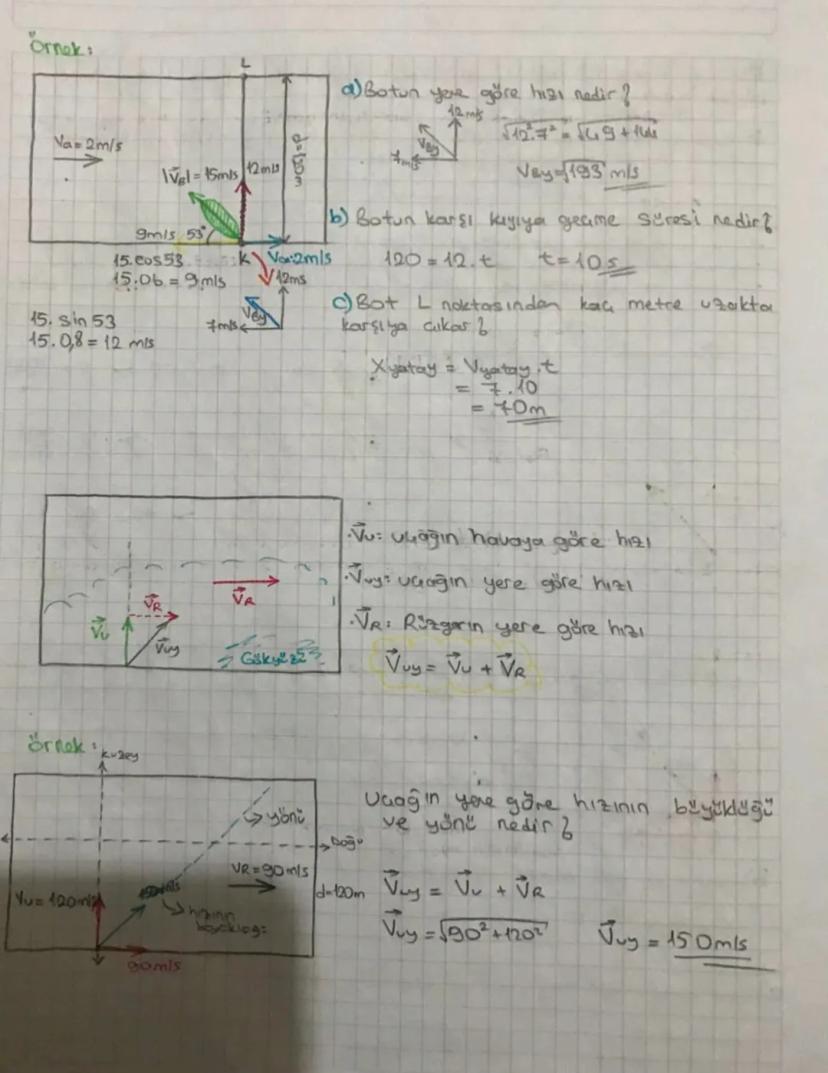 Örnek:
L
Va = 2m/s
|V⃗B| = 15m/s
12m/s
9m/s 53°
K
Va=2m/s
15.cos53
15.06 = 9m/s
12ms
7m/s
VBy
15. sin 53
15.0,8 = 12 m/s
a) Botun yere göre hızı nedir?
12m/s
7m/s
VBy
VBy = √193 m/s
b) Botun karşı kıyıya geçme süresi nedir?
120 = 12.t t = 10s
c) Bot L noktasından kaç metre uzakta
karşıya çıkar?
Xyatay = Vyatay.t
= 7.10
= 70m
V⃗R
V⃗R
V⃗U
V⃗uy
Gökyüzü
.V⃗U: uçağın havaya göre hızı
.V⃗uy: uçağın yere göre hızı
.V⃗R: Rüzgarın yere göre hızı
V⃗uy = V⃗U + V⃗R
Örnek:
kuzey
yönü
Doğu
VR = 90m/s
Vu = 120m/s
d=120m
hızının
90m/s
Uçağın yere göre hızının büyüklüğü
ve yönü nedir?
V⃗uy = V⃗U + V⃗R
V⃗uy = √90² + 120² V⃗uy = 150m/s